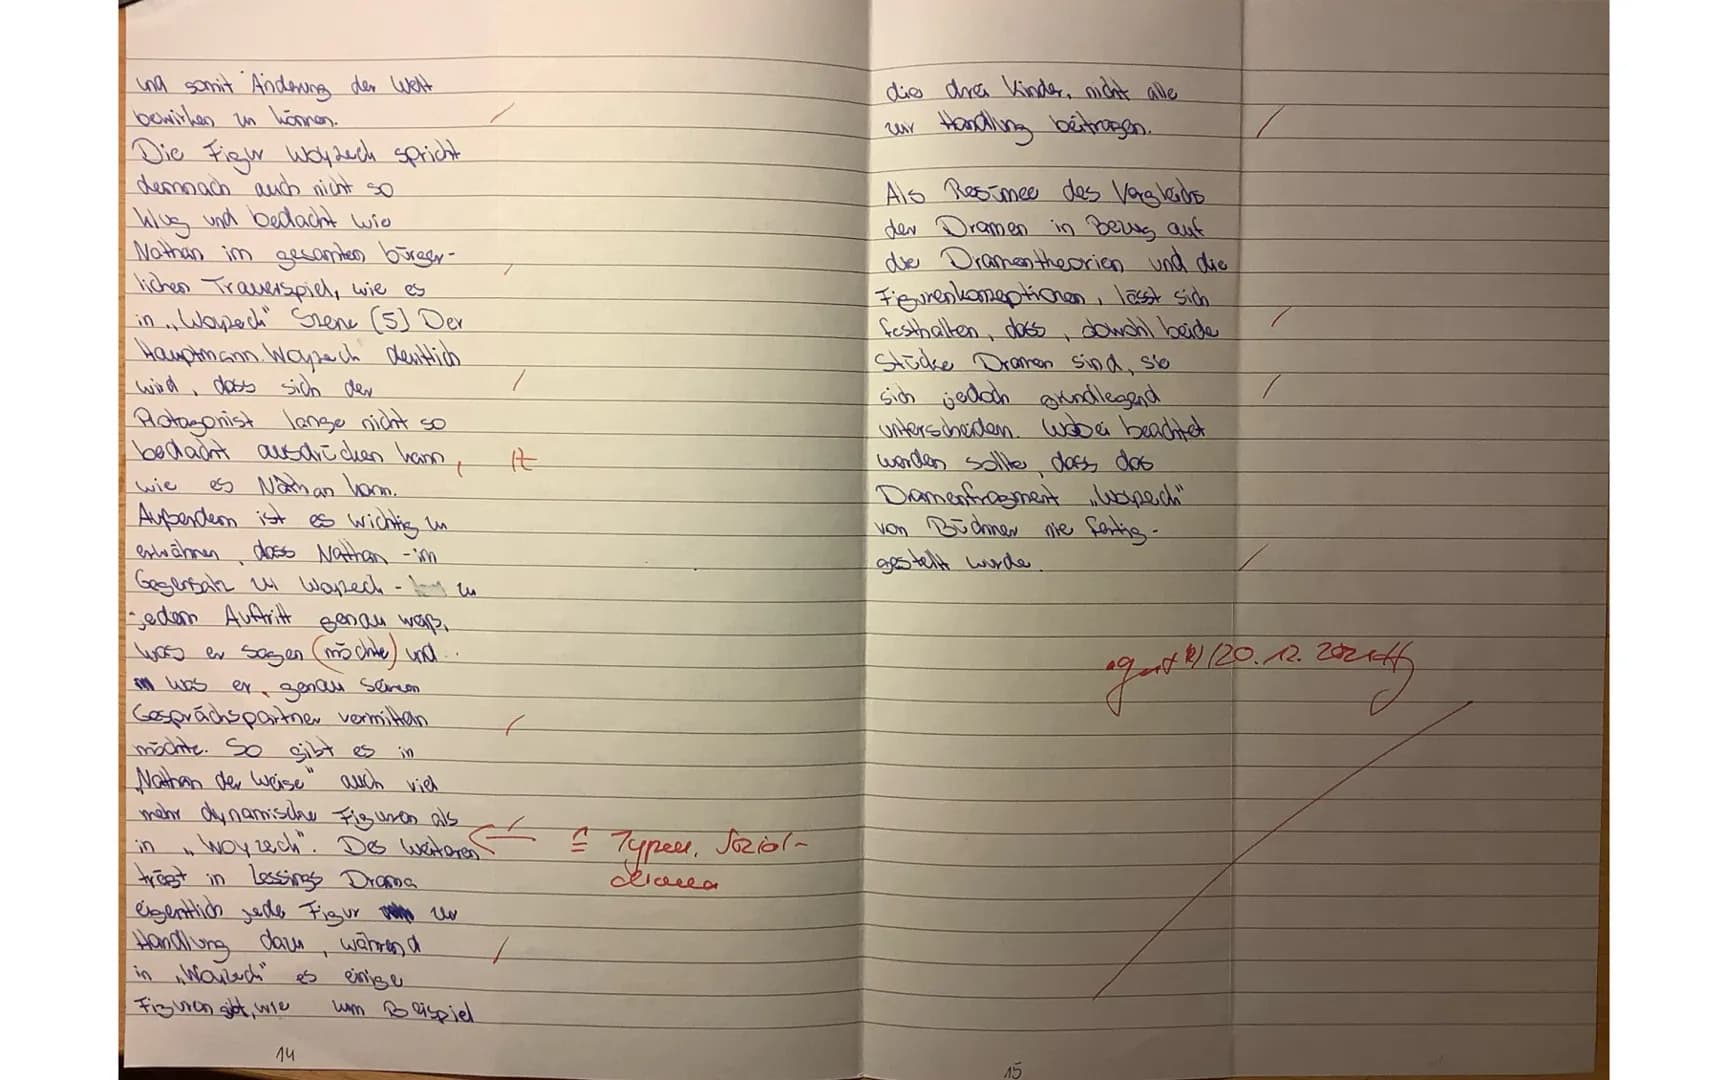 und somit Änderung der Welt
bewirken zu können.
Die Figur Woyzeck spricht
demnach auch nicht so
klug und bedacht wie
Nathan im gesamten bürger-
lichen Trauerspiel, wie es
in „Woyzeck" Szene (5) Der
Hauptmann. Woyzeck deutlich
wird, dass sich der
Protagonist lange nicht so
bedacht ausdrücken kann,
wie es Nathan kann.
Außerdem ist es wichtig zu
erwähnen, dass Nathan - im
Gegensatz zu Woyzeck - zu
jedem Auftritt genau weiß,
was er sagen (möchte) und
was er genau seinen
Gesprächspartner vermitteln
möchte. So gibt es in
„Nathan der Weise" auch viel
mehr dynamische Figuren als
in „Woyzeck". Des Weiteren
≙ Typen, Sozial-
trägt in Lessings Drama
eigentlich jede Figur zur
Handlung dazu, während
in „Woyzeck" es einige
Figuren gibt, wie zum Beispiel
14
die drei Kinder, nicht alle
zur Handlung beitragen.
Als Resümee des Vergleichs
der Dramen in Bezug auf
die Dramentheorien und die
Figurenkonzeptionen, lässt sich
festhalten, dass, obwohl beide
Stücke Dramen sind, sie
sich jedoch grundlegend
unterscheiden. Wobei beachtet
werden sollte, dass das
Dramenfragment „Woyzeck"
von Büchner nie fertig-
gestellt wurde.
20.12.2021
15